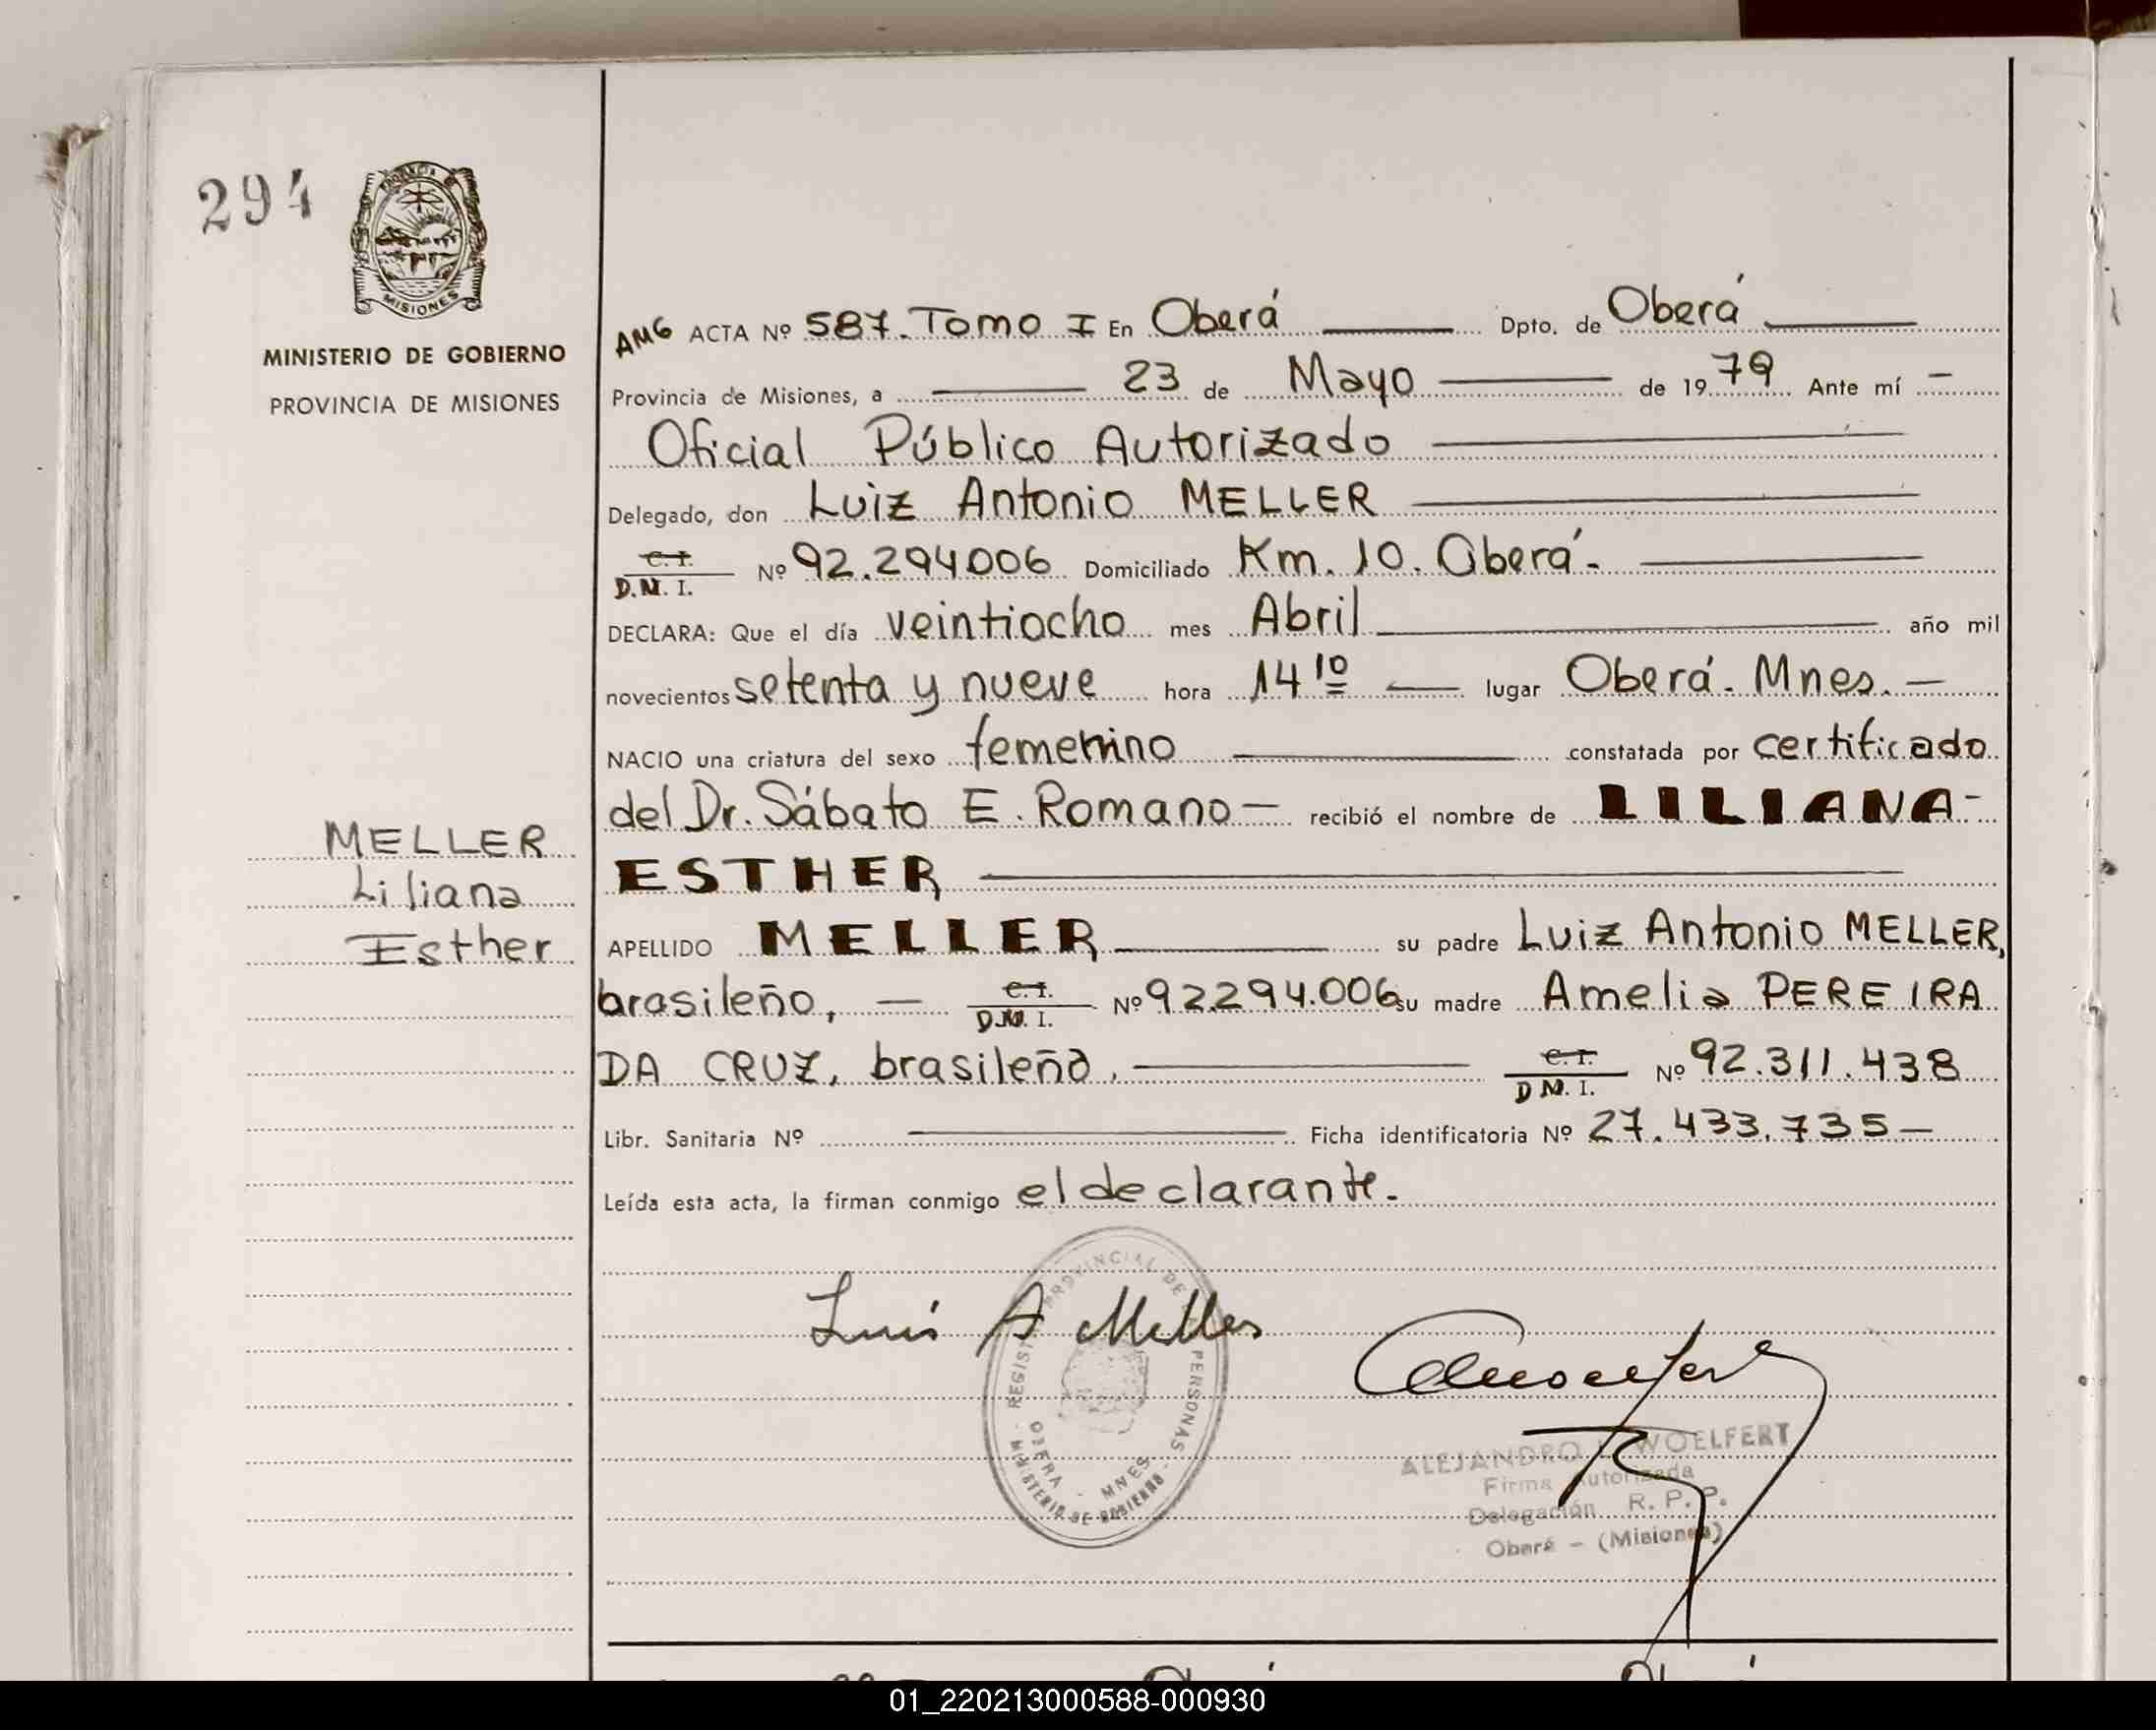 294
MISIONES
MINISTERIO DE GOBIERNO
PROVINCIA DE MISIONES
MELLER
Liliana
Esther
AMG ACTA Nº 587. Tomo I En Oberá Dpto. de Oberá
Provincia de Misiones, a 23 de Mayo de 1979 Ante mí
Oficial Público Autorizado
Delegado, don Luiz Antonio MELLER
C. I. D.N. I. Nº 92.294.006 Domiciliado Km. 10. Oberá.
DECLARA: Que el día veintiocho mes Abril año mil
novecientos setenta y nueve hora 14 10 lugar Oberá. Mnes.
NACIO una criatura del sexo femenino constatada por certificado
del Dr. Sábato E. Romano recibió el nombre de LILIANA
ESTHER
APELLIDO MELLER su padre Luiz Antonio MELLER,
brasileño, C. I. D.N. I. Nº 92.294.006 su madre Amelia PEREIRA
DA CRUZ, brasileña. C. I. D N. I. Nº 92.311.438
Libr. Sanitaria Nº Ficha identificatoria Nº 27.433.735
Leída esta acta, la firman conmigo el declarante.
Luis A Meller
REGISTRO PROVINCIAL DE PERSONAS
OBERA - MNES
MINISTERIO DE GOBIERNO
ALEJANDRO WOELFERT
Firma Autorizada
Delegación R. P. P.
Oberá - (Misiones)
01_220213000588-000930